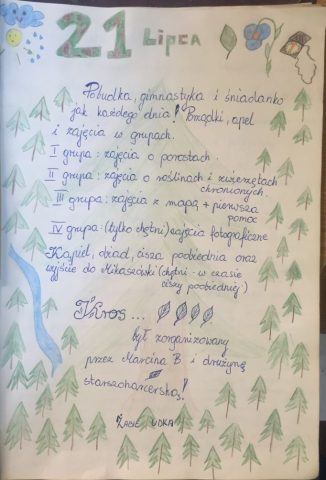 21 Lipca
Pobudka, gimnastyka i śniadanko
jak każdego dnia! Brządki, apel
i zajęcia w grupach.
I grupa: zajęcia o porostach.
II grupa: zajęcia o roślinach i zwierzętach
chronionych.
III grupa: zajęcia z mapą + pierwsza
pomoc
IV grupa: (tylko chętni) zajęcia fotograficzne
Kąpiel, obiad, cisza pobiednia oraz
wyjście do Mikaszówki (chętni - w czasie
ciszy pobiedniej)
INO's...
był zorganizowany
przez Marcina B i drużynę
starszoharcerską!